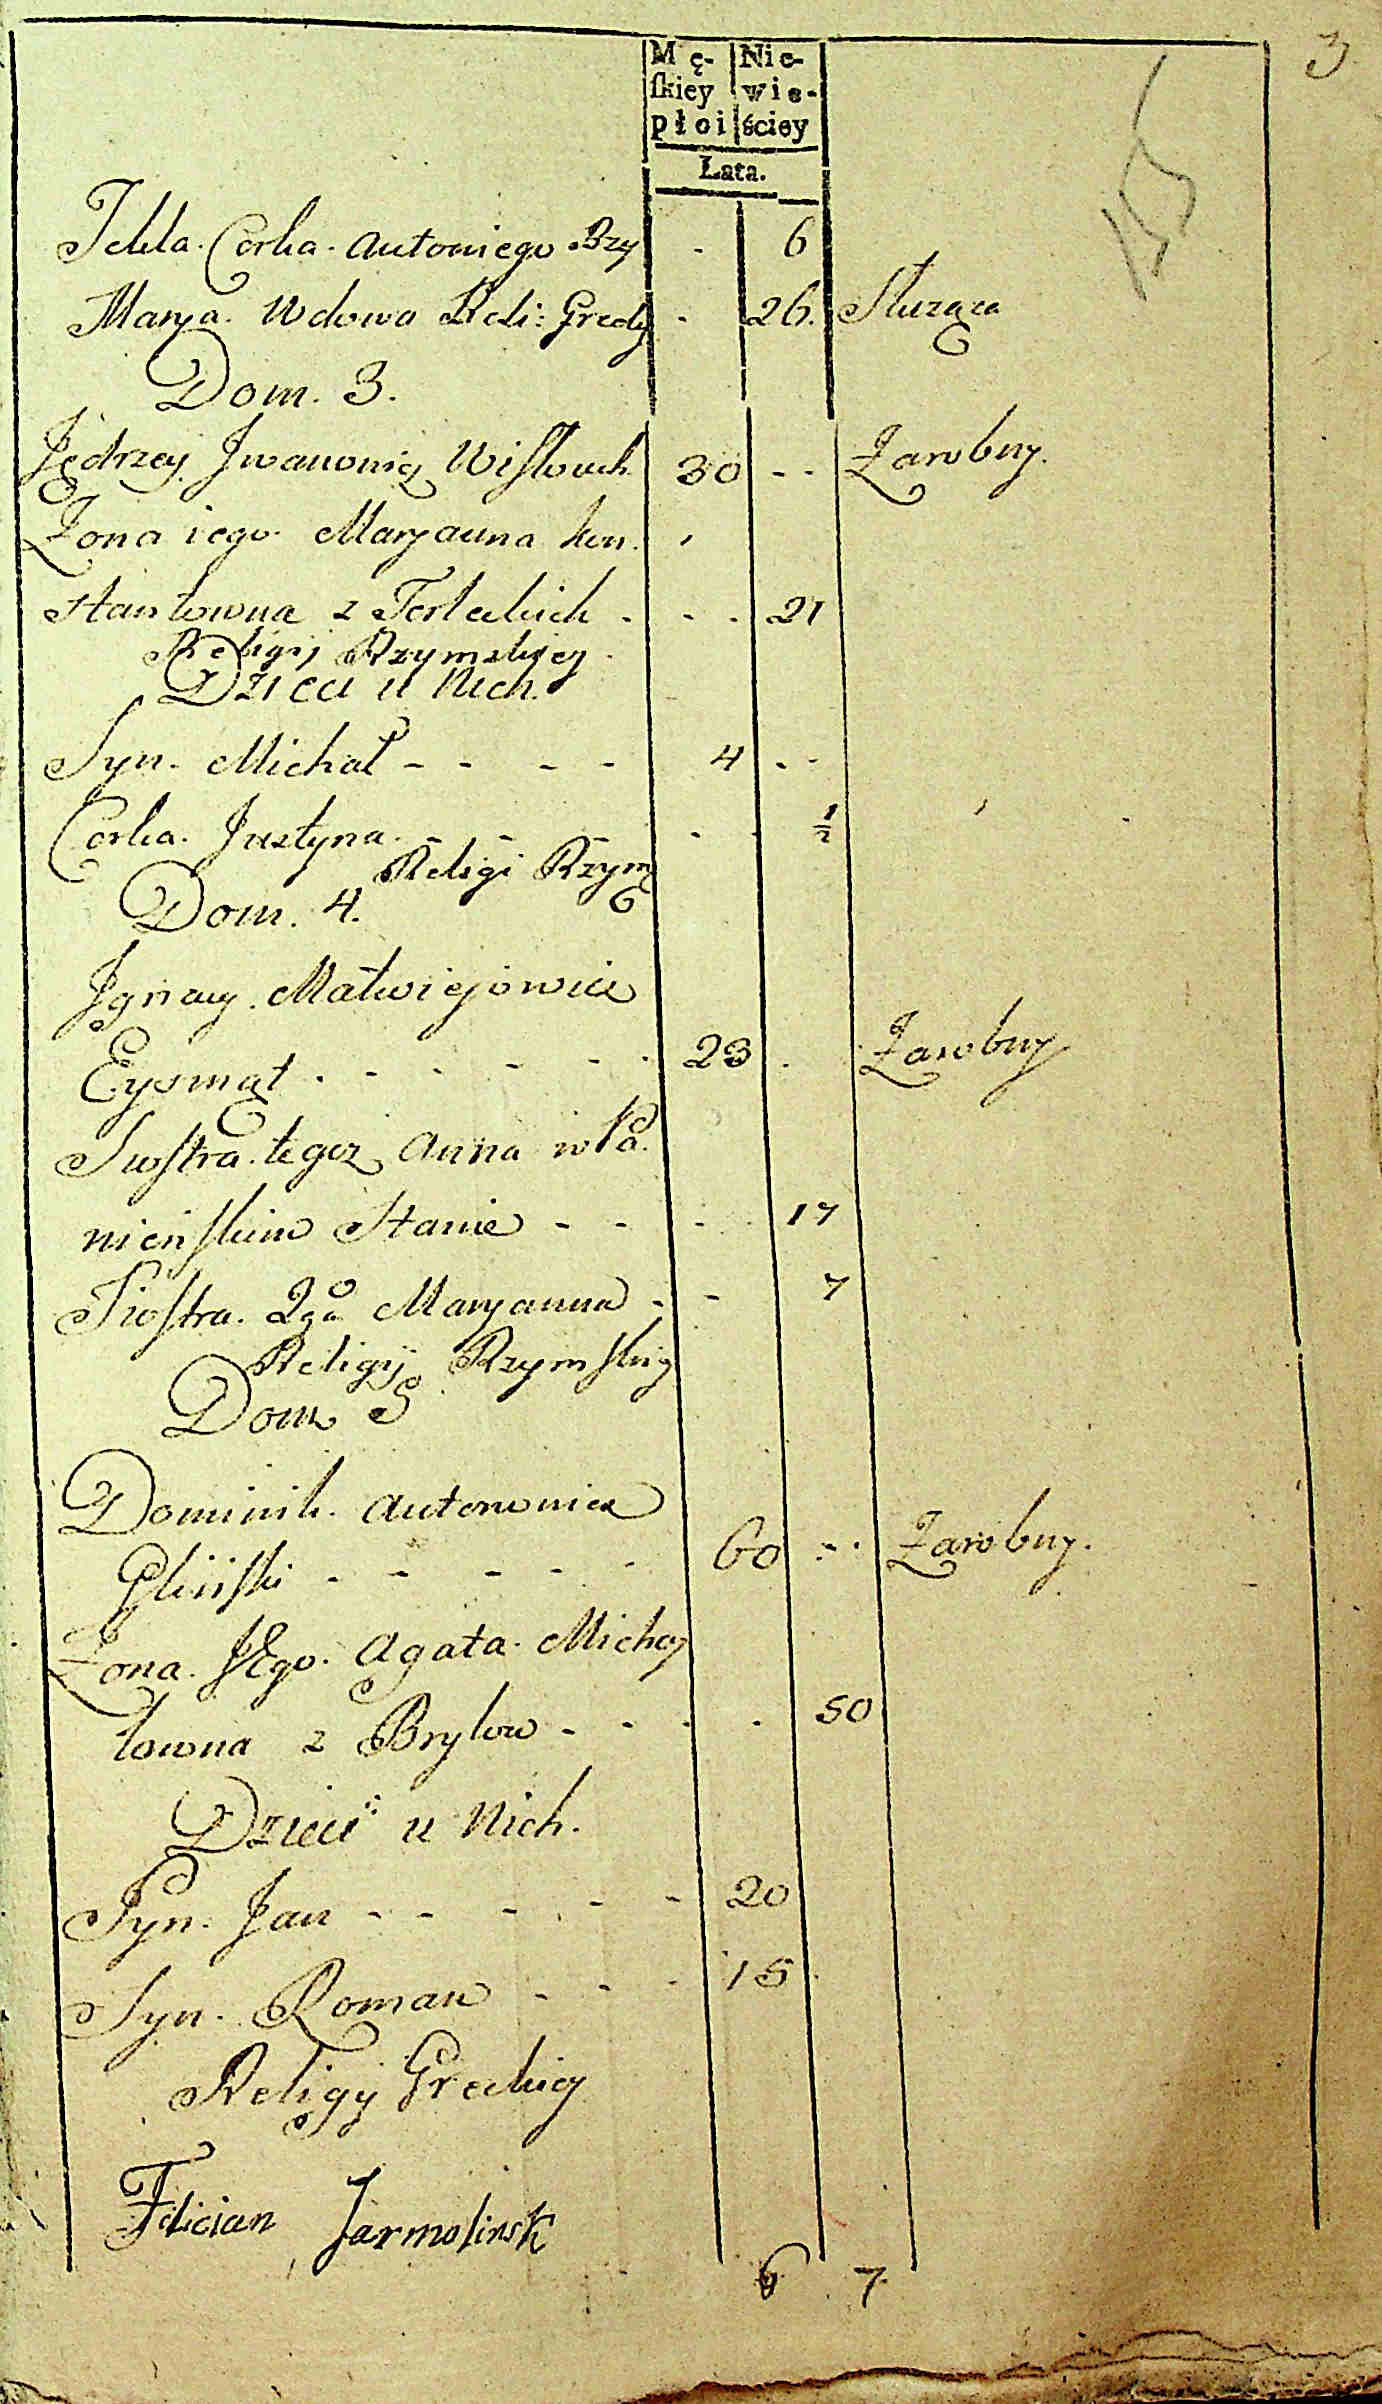 3
Mę- Nie-
ſkiey wie-
płci ściey
Lata.
155
Tekla. Corka. Antoniego. Rzy 6
Marya. Wdowa Reli: Grecky 26. Służąca
Dom. 3.
Jędrzey Jwanowicz Wisłouch 30 Zarobny.
Zona iego. Maryanna kon.
stantowna z Terleckich 21
Religij Rzymskiey
Dzieci u Nich.
Syn. Michał 4
Corka. Justyna. 1/2
Religi Rzym
Dom. 4.
Jgnacy. Matwiejowicz
Eysmąt 23 Zarobny
Siostra. tegoz Anna w Pa.
nieńskim Stanie 17
Siostra. 2ga Maryanna 7
Religij Rzymskiy
Dom 5
Dominik. Antonowicz
Gliński 60 Zarobny.
Zona. JEgo. Agata. Michay
łowna z Brylow 50
Dzieci u Nich.
Syn. Jan 20
Syn. Roman 15
Religij Greckiey
Felician Jarmolinsk
6 7